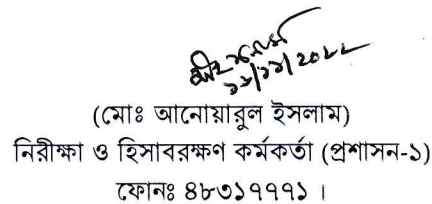 (মোঃ আনোয়ারুল ইসলাম)
নিরীক্ষা ও হিসাবরক্ষণ কর্মকর্তা (প্রশাসন-১)
ফোনঃ ৪৮৩১৭৭৭১ ।